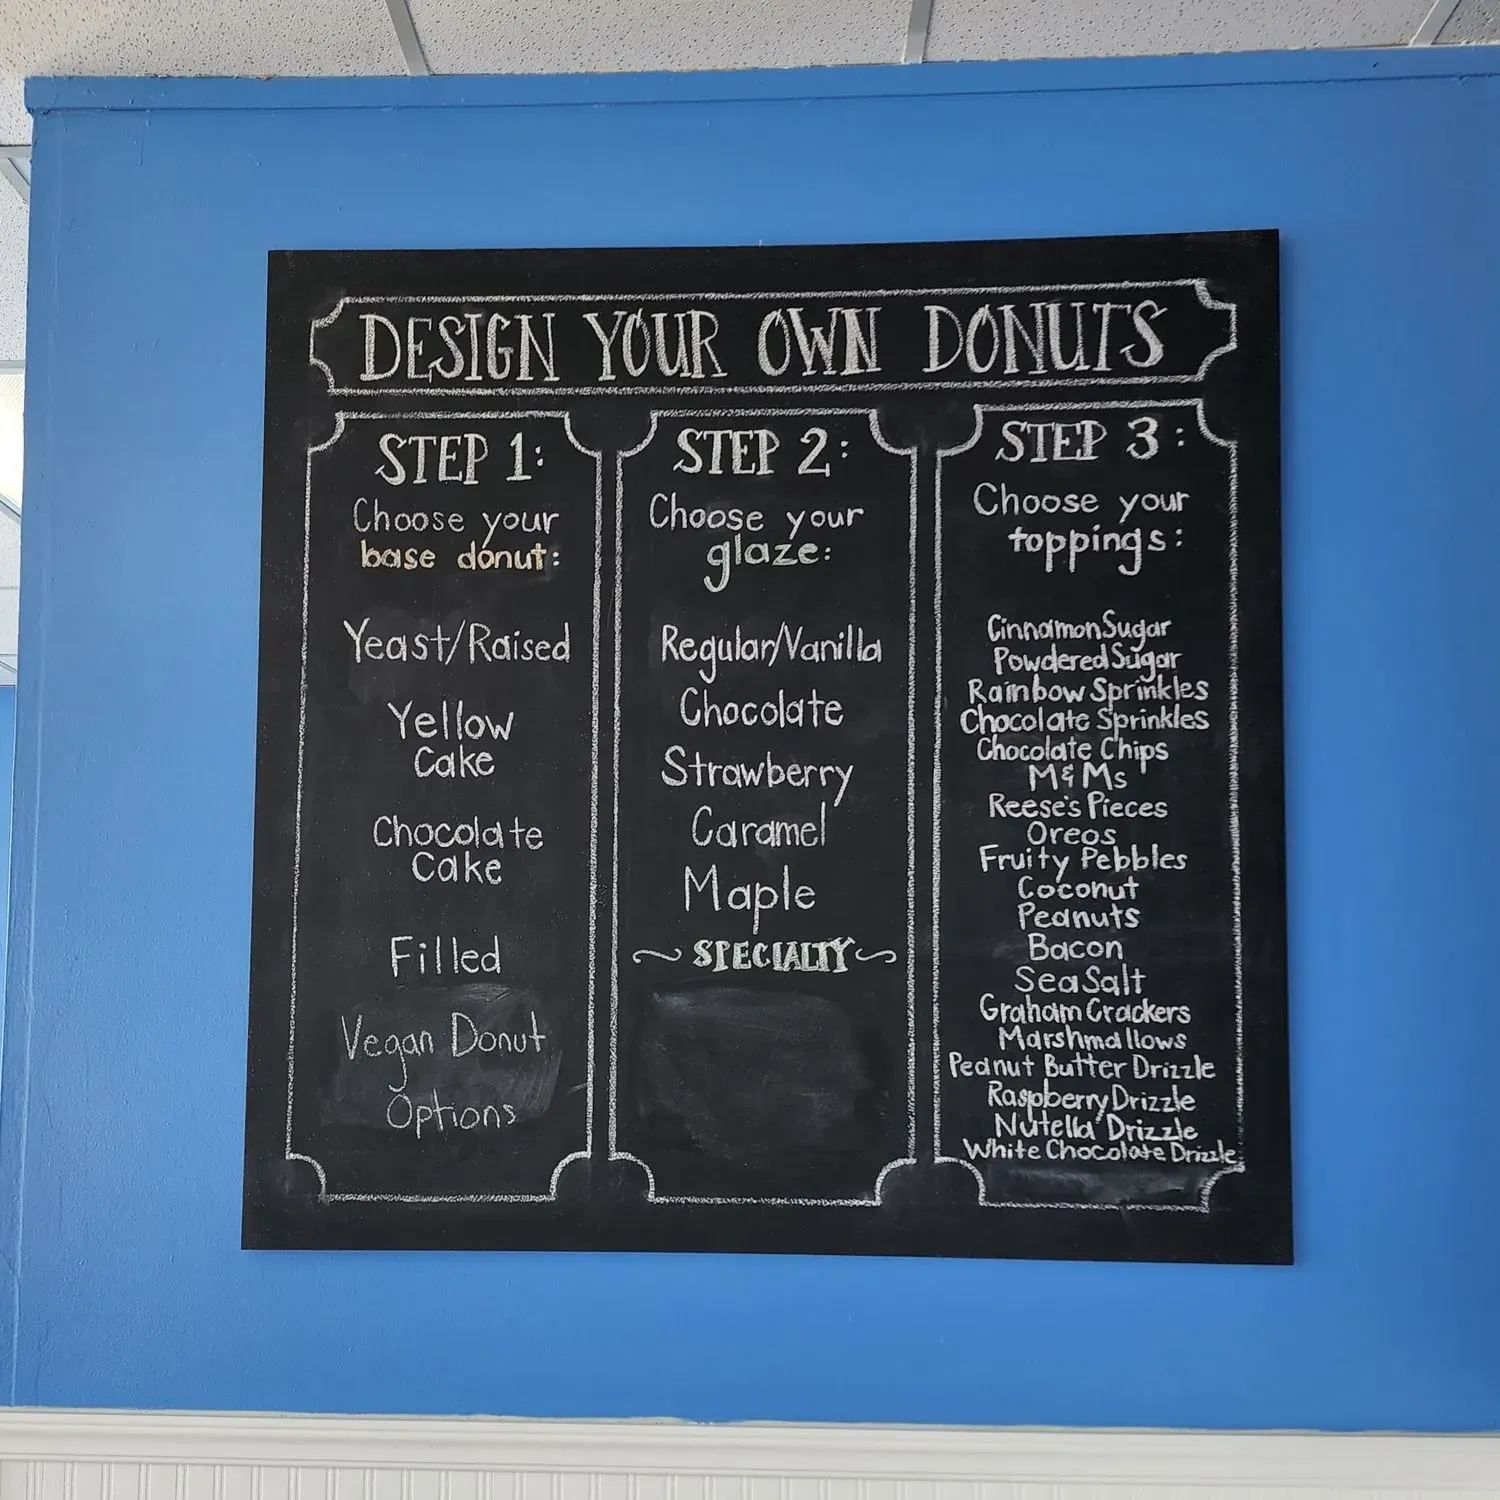 DESIGN YOUR OWN DONUTS
STEP 1:
Choose your
base donut:
Yeast/Raised
Yellow
Cake
Chocolate
Cake
Filled
Vegan Donut
Options
STEP 2:
Choose your
glaze:
Regular/Vanilla
Chocolate
Strawberry
Caramel
Maple
~ SPECIALTY ~
STEP 3:
Choose your
toppings:
Cinnamon Sugar
Powdered Sugar
Rainbow Sprinkles
Chocolate Sprinkles
Chocolate Chips
M&Ms
Reese's Pieces
Oreos
Fruity Pebbles
Coconut
Peanuts
Bacon
Sea Salt
Graham Crackers
Marshmallows
Peanut Butter Drizzle
Raspberry Drizzle
Nutella Drizzle
White Chocolate Drizzle